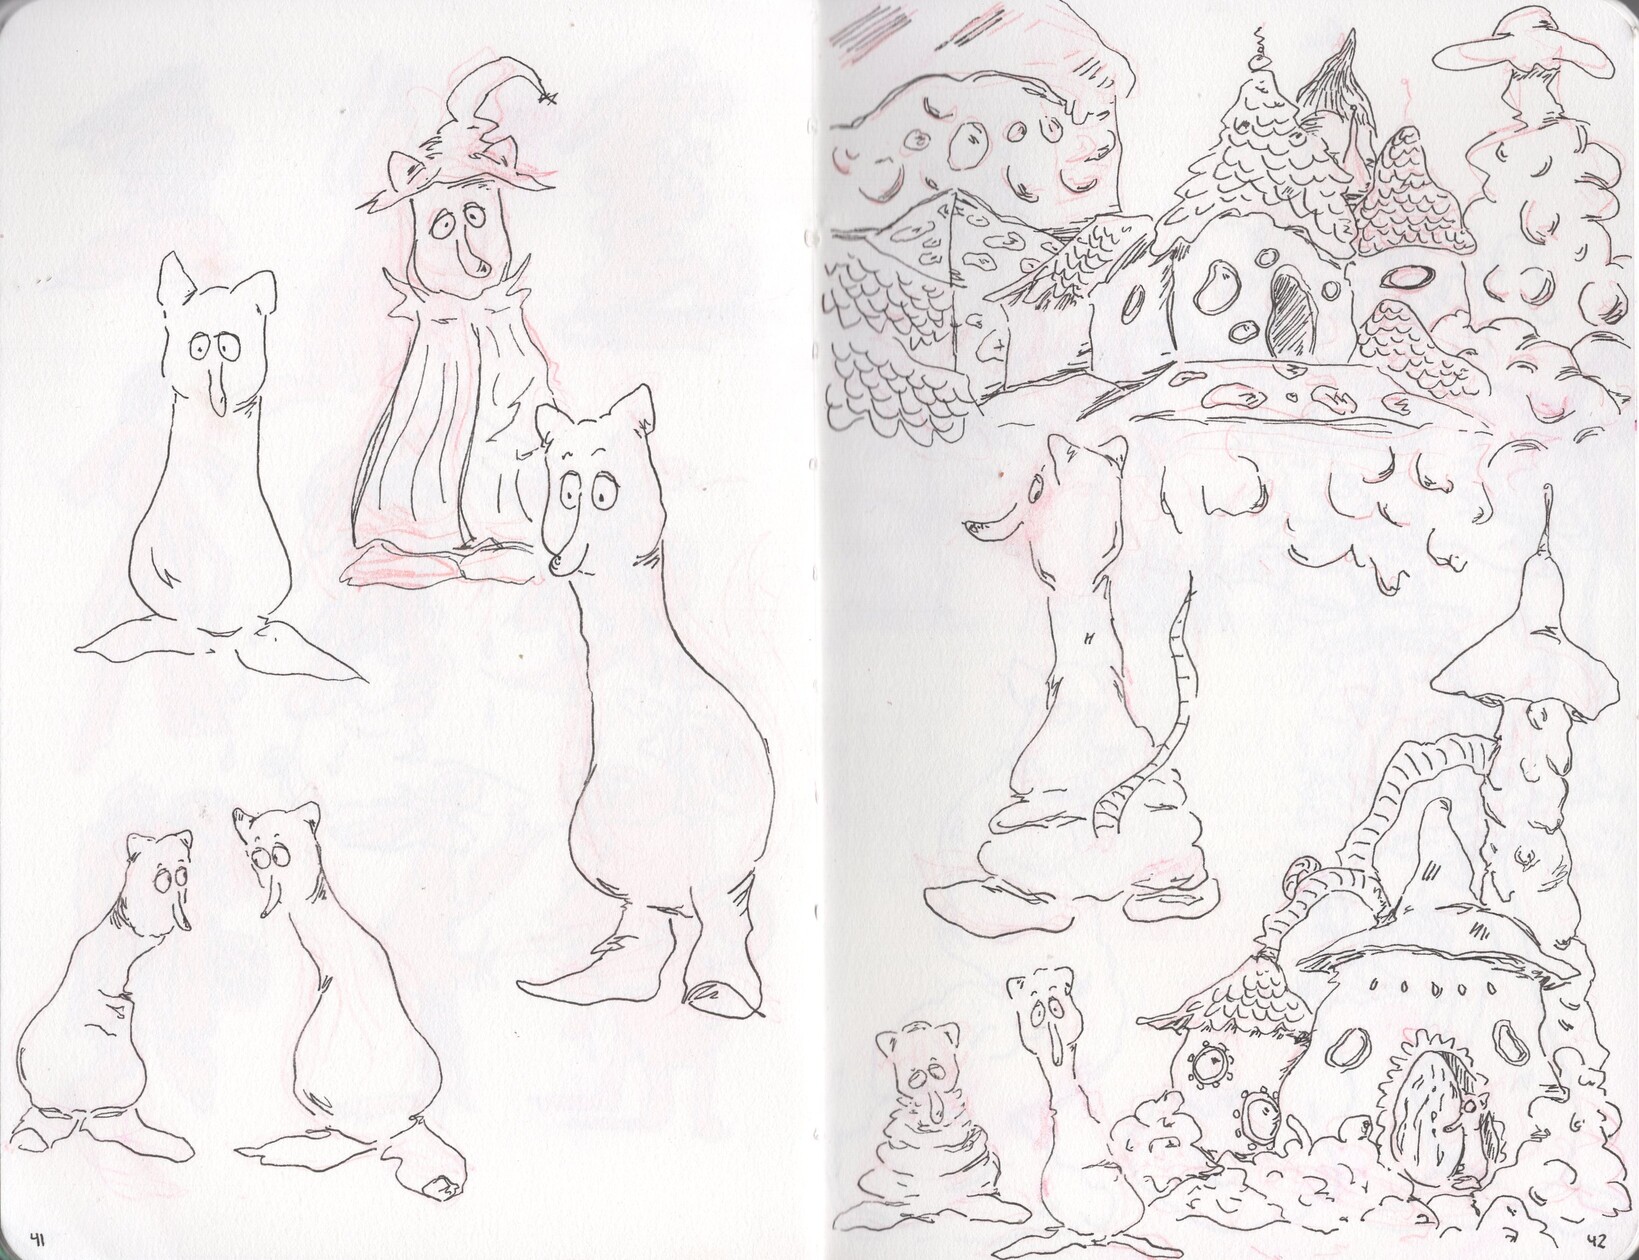 41
42